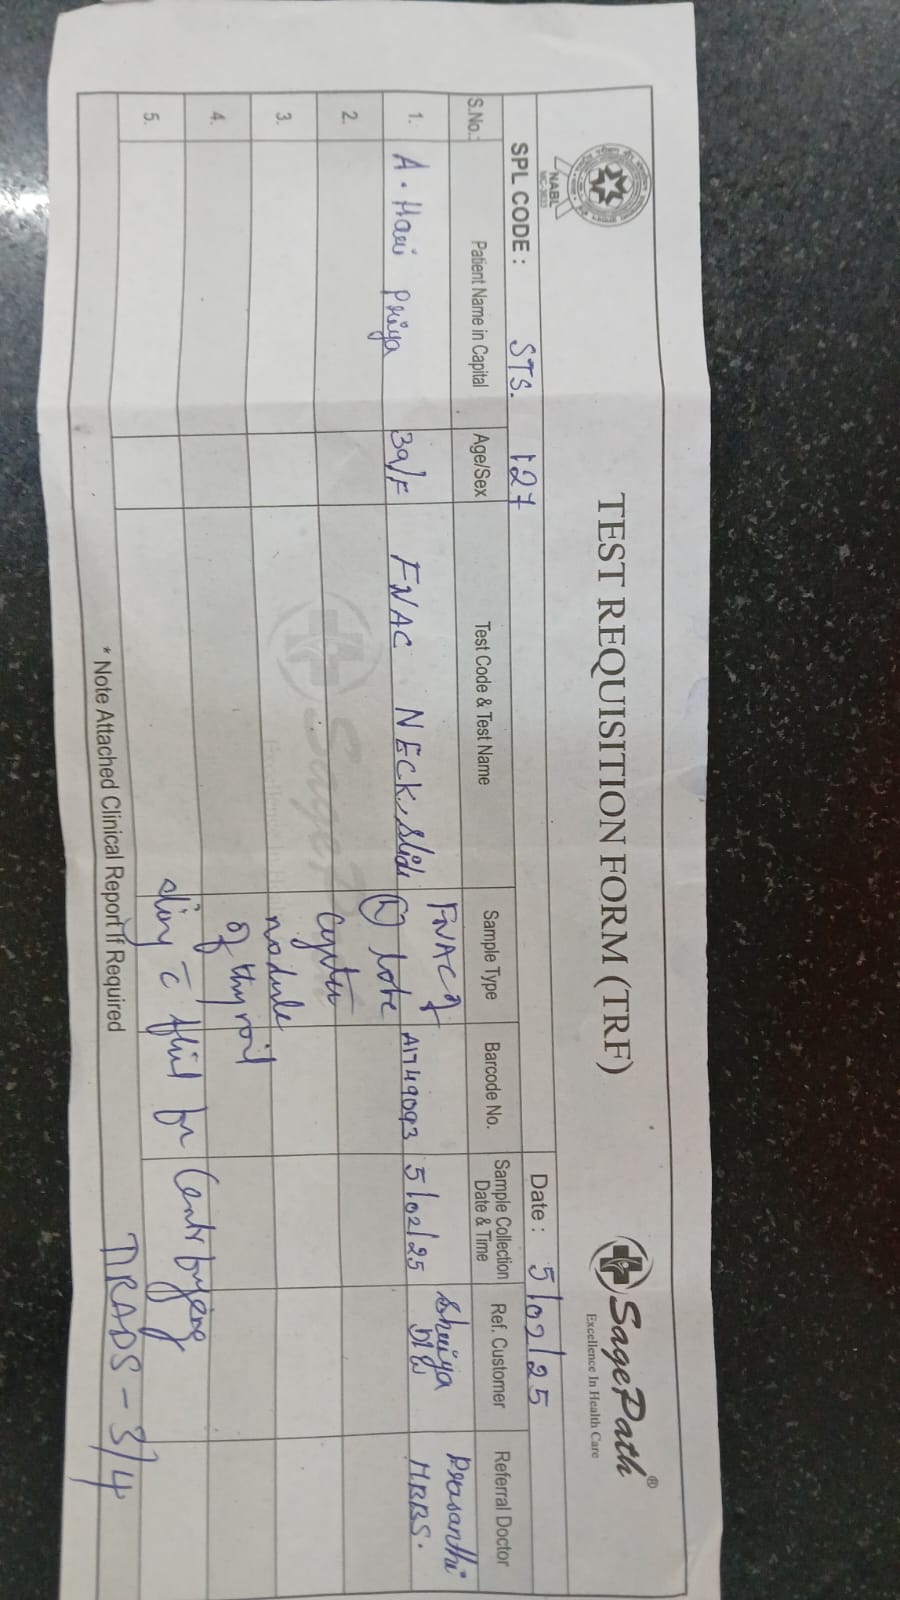 TEST REQUISITION FORM (TRF)
NABL
SagePath®
Excellence In Health Care
SPL CODE : STS. 127
Date : 5/02/25
S.No.: Patient Name in Capital Age/Sex Test Code & Test Name Sample Type Barcode No. Sample Collection Date & Time Ref. Customer Referral Doctor
1. A. Hari Priya 39/F FNAC NECK, Slide A1749093 5/02/25 Shriya Prasanthi
M.B.B.S.
FNAC of
(L) lobe
2.
cystic
3.
nodule
4.
of thyroid
5.
c̄ fluid for Centrifuging
TIRADS - 3/4
* Note Attached Clinical Report If Required